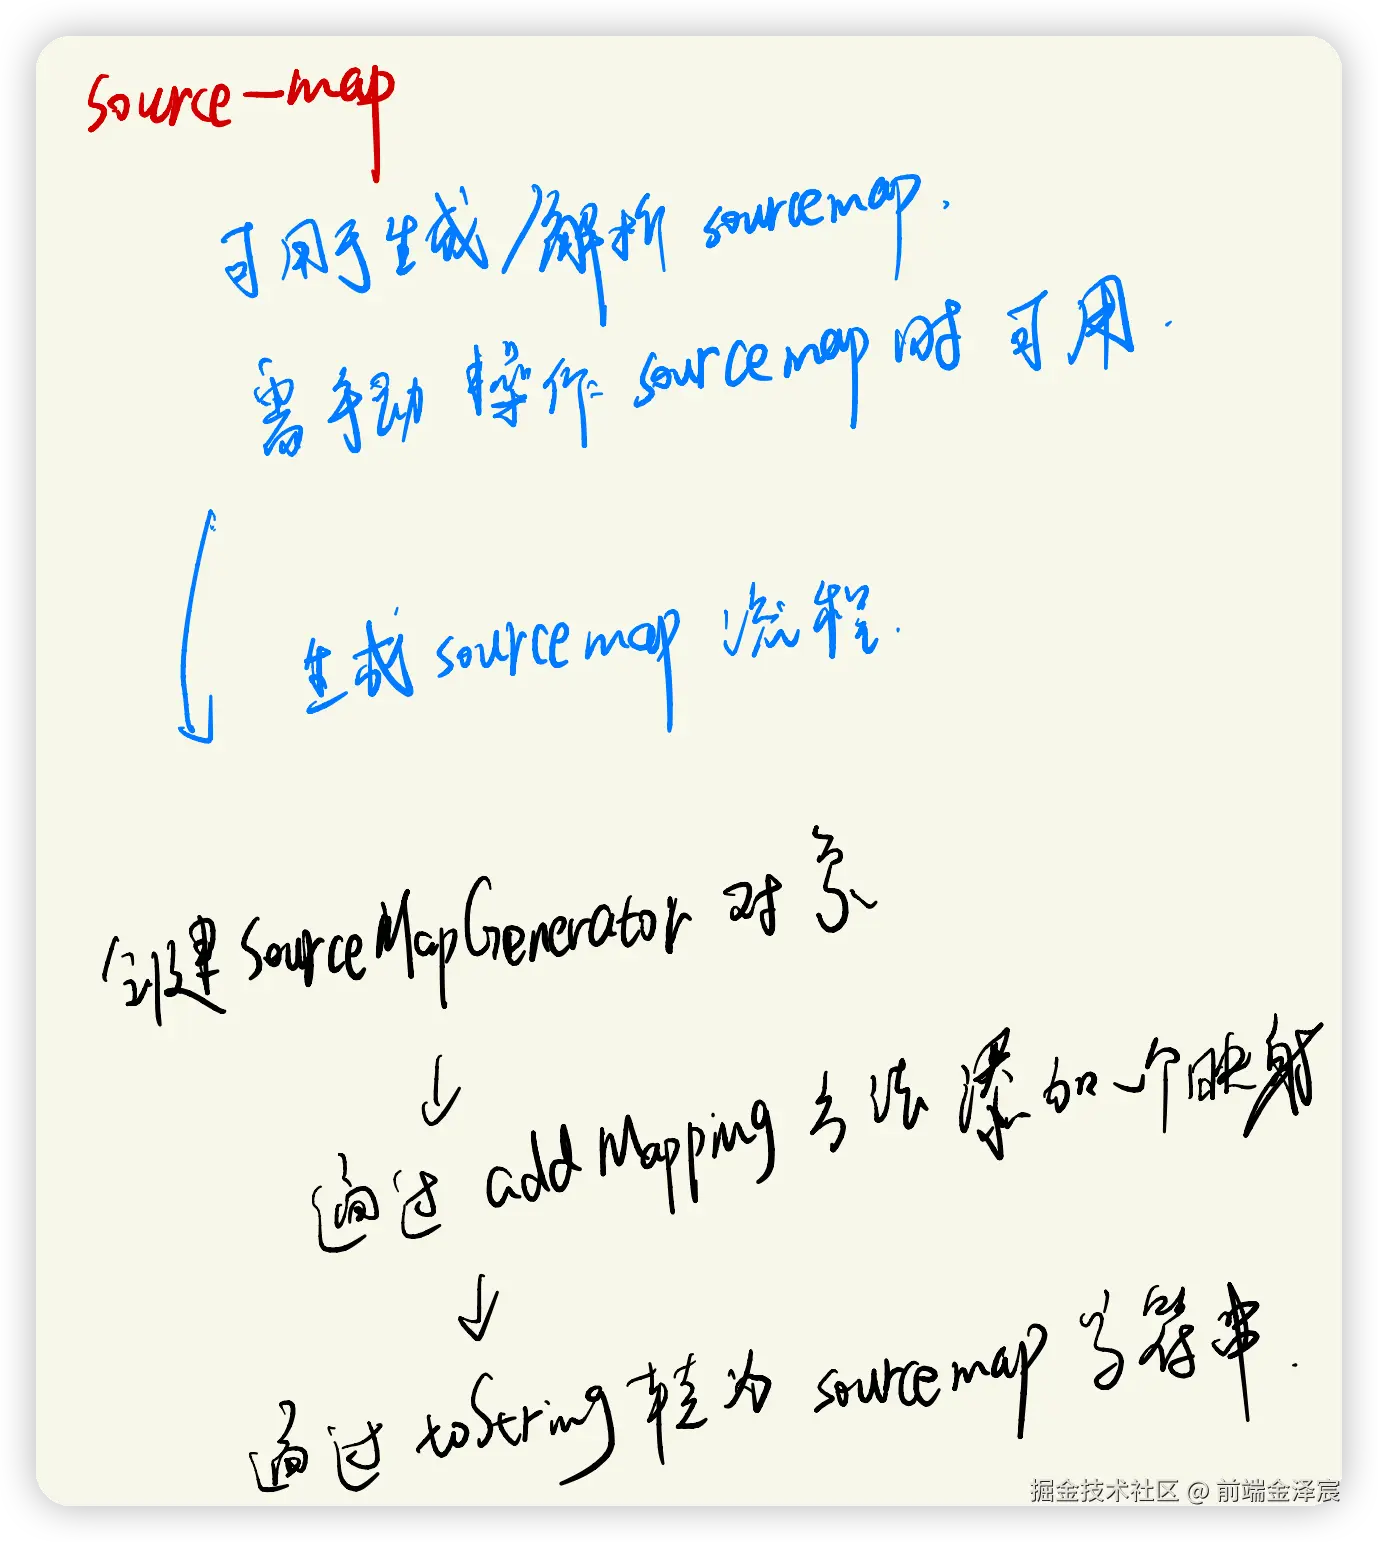 source-map
可用于生成/解析 sourcemap.
需手动操作 sourcemap 时可用.
生成 sourcemap 流程.
创建 SourceMapGenerator 对象
通过 addMapping 方法添加一个映射
通过 toString 转为 sourcemap 字符串.
掘金技术社区 @ 前端金泽宸